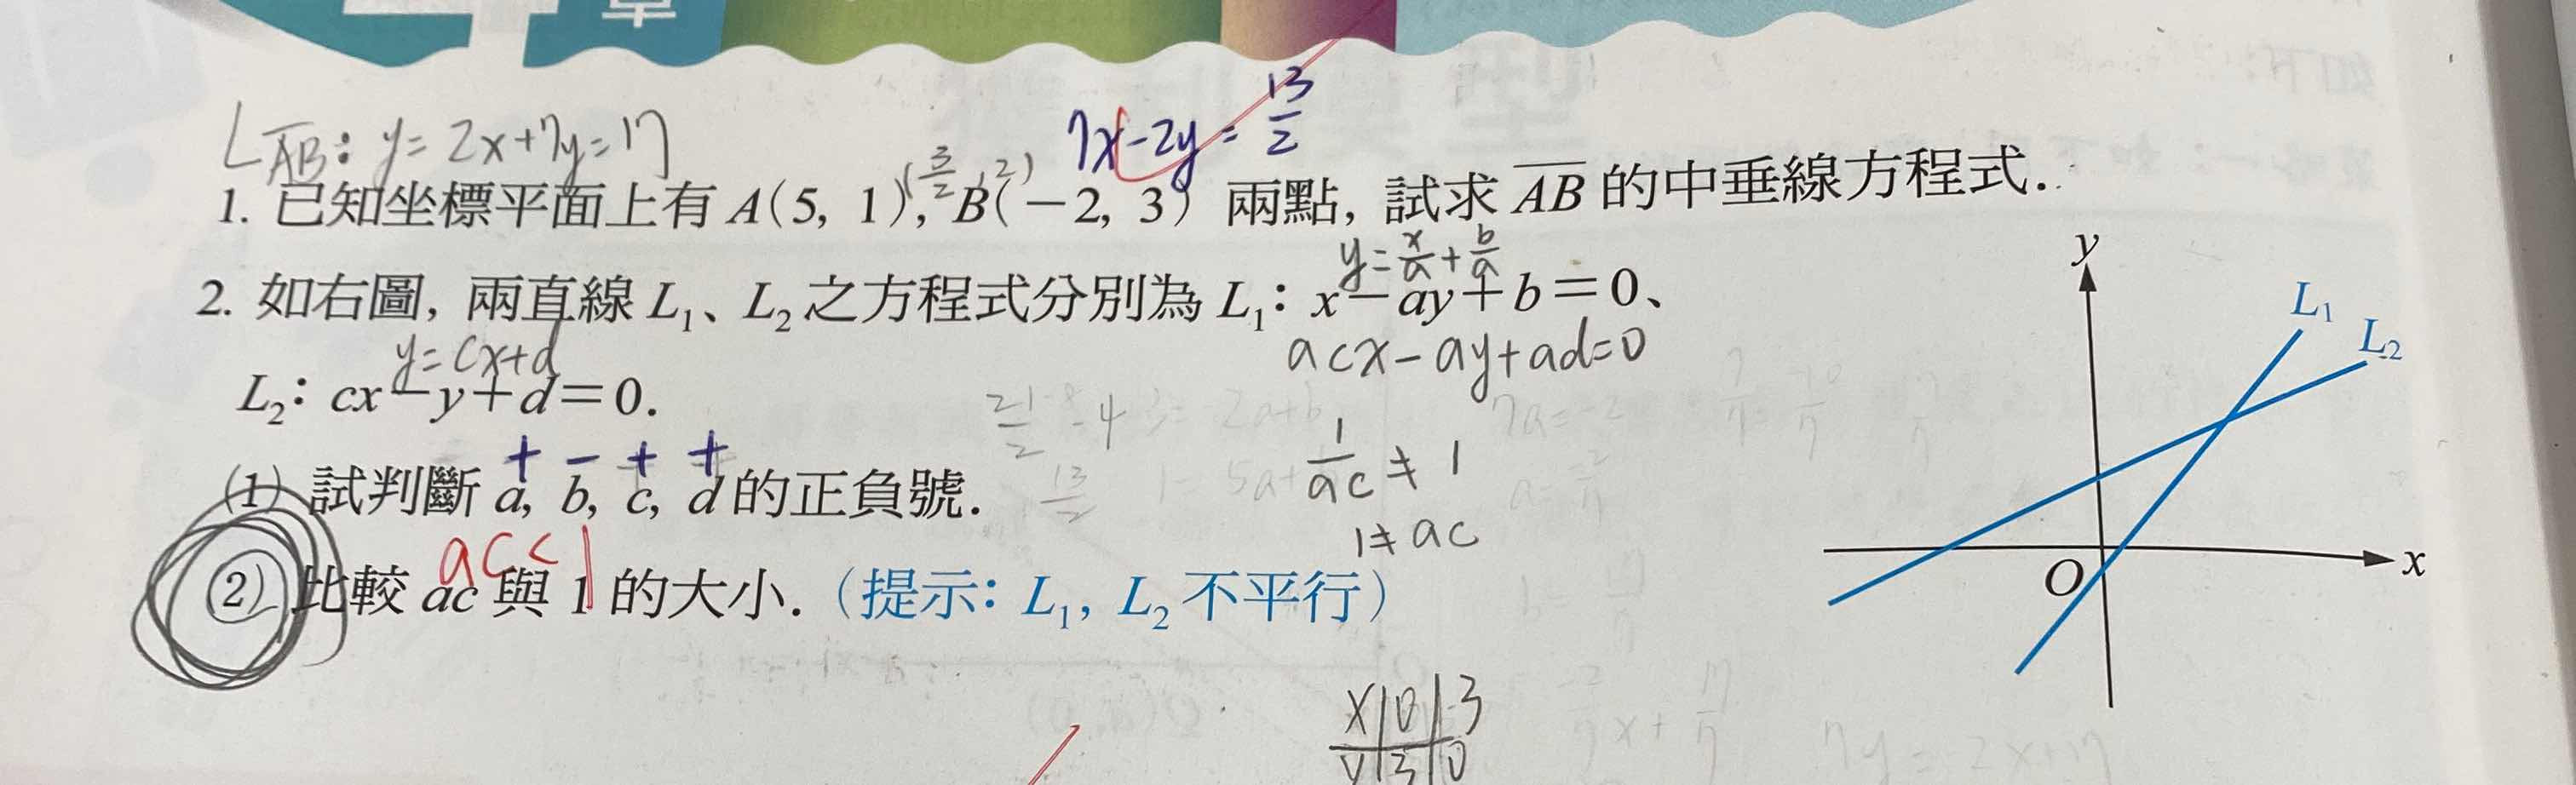 章
L_AB: y = 2x+7y=17
7x-2y = 13/2
(3/2, 2)
1. 已知坐標平面上有 A(5, 1), B(−2, 3) 兩點, 試求 AB 的中垂線方程式.
y = x/a + b/a
2. 如右圖, 兩直線 L1、L2 之方程式分別為 L1: x−ay+b=0、
y=cx+d
acx-ay+ad=0
L2: cx−y+d=0.
+ − + +
(1) 試判斷 a, b, c, d 的正負號.
1/ac ≠ 1
1≠ac
ac<1
(2) 比較 ac 與 1 的大小.(提示: L1, L2 不平行)
y
L1
L2
O
x
x 0 -3
y 3 0